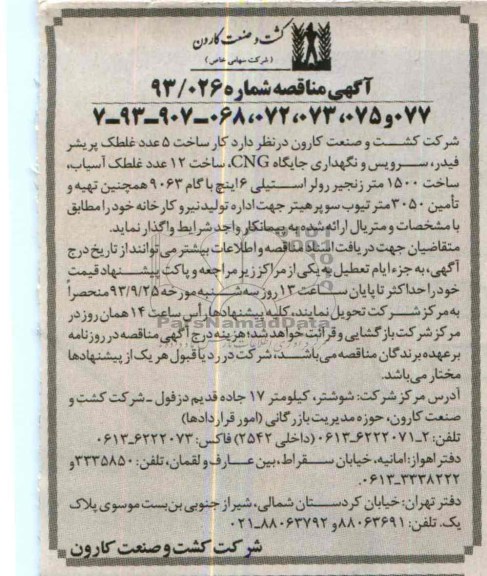 کشت و صنعت کارون
(شرکت سهامی خاص)
آگهی مناقصه شماره ۹۳/۰۲۶
۰۷۷ و ۰۷۵، ۰۷۳، ۰۷۲، ۰۶۸-۹۰۷-۹۳-۷
شرکت کشت و صنعت کارون درنظر دارد کار ساخت ۵ عدد غلطک پریشر
فیدر، سرویس و نگهداری جایگاه CNG، ساخت ۱۲ عدد غلطک آسیاب،
ساخت ۱۵۰۰ متر زنجیر رولر استیلی ۶ اینچ با گام ۹۰۶۳ همچنین تهیه و
تأمین ۳۰۵۰ متر تیوب سوپرهیتر جهت اداره تولید نیرو کارخانه خود را مطابق
با مشخصات و متریال ارائه شده به پیمانکار واجد شرایط واگذار نماید.
متقاضیان جهت دریافت اسناد مناقصه و اطلاعات بیشتر می‌توانند از تاریخ درج
آگهی، به جزء ایام تعطیل به یکی از مراکز زیر مراجعه و پاکت پیشنهاد قیمت
خود را حداکثر تا پایان ساعت ۱۳ روز سه شنبه مورخه ۹۳/۹/۲۵ منحصراً
به مرکز شرکت تحویل نمایند، کلیه پیشنهادها رأس ساعت ۱۴ همان روز در
مرکز شرکت بازگشایی و قرائت خواهد شد؛ هزینه درج آگهی مناقصه در روزنامه
بر عهده برندگان مناقصه می‌باشد، شرکت در رد یا قبول هر یک از پیشنهادها
مختار می‌باشد.
آدرس مرکز شرکت: شوشتر، کیلومتر ۱۷ جاده قدیم دزفول - شرکت کشت و
صنعت کارون، حوزه مدیریت بازرگانی (امور قراردادها)
تلفن: ۲-۶۲۲۲۰۷۱-۰۶۱۳ (داخلی ۲۵۴۲) فاکس: ۶۲۲۲۰۷۳-۰۶۱۳
دفتر اهواز: امانیه، خیابان سقراط، بین عارف و لقمان، تلفن: ۳۳۳۵۸۵۰ و
۳۳۳۸۲۲۲-۰۶۱۳.
دفتر تهران: خیابان کردستان شمالی، شیراز جنوبی بن‌بست موسوی پلاک
یک. تلفن: ۸۸۰۶۳۶۹۱ و ۸۸۰۶۳۷۹۲-۰۲۱
شرکت کشت و صنعت کارون
ParsNamadData